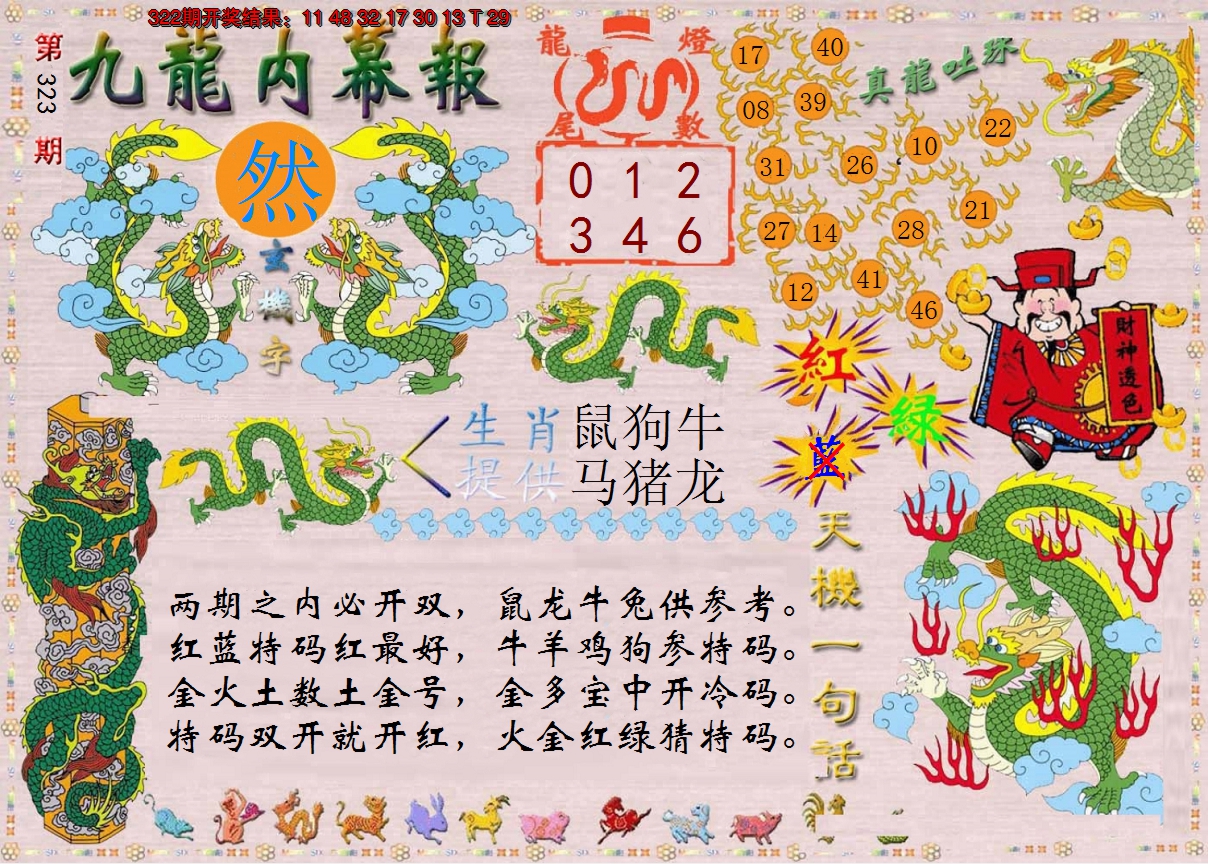 322期开奖结果：11 48 32 17 30 13 T 29
第323期
九龍内幕報
然
玄機字
龍燈
尾數
0 1 2
3 4 6
真龍吐珠
17 40
08 39
31 26 10 22
27 14 28 21
12 41 46
財神透色
紅
綠
藍
生肖 鼠狗牛
提供 马猪龙
两期之内必开双，鼠龙牛兔供参考。
红蓝特码红最好，牛羊鸡狗参特码。
金火土数土金号，金多宝中开冷码。
特码双开就开红，火金红绿猜特码。
天機一句話